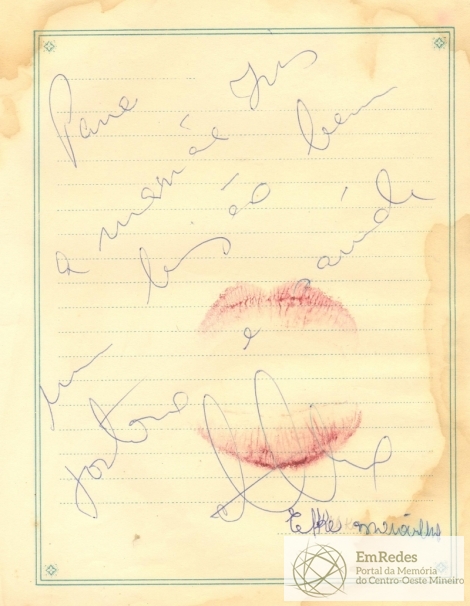 Para
a mamãe
um beijão bem
gostoso e saúde
Elke Maravilha
EmRedes
Portal da Memória
do Centro-Oeste Mineiro